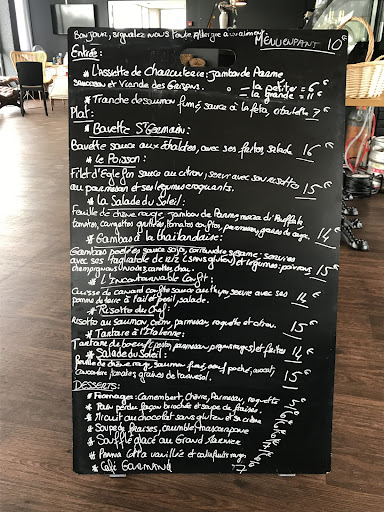 Bonjour, signalez nous toute Allergie avant
MENU ENFANT 10€
Entrée:
* L'Assiette de Charcuterie: Jambon de Parme,
saucisson et Viande des Grisons. - la petite = 6€
- la grande = 11€
* Tranche de saumon fumé, sauce à la feta, 7€
Plat:
* Bavette St Germain:
Bavette sauce aux échalotes, avec ses frites, salade 16€
* le Poisson:
Filet d'Eglefin sauce au citron, servir avec son risotto
au parmesan et ses légumes croquants. 15€
* la Salade du Soleil:
Feuille de chêne rouge, jambon de Parme, mozza di Buffala
tomates, courgettes grillées, tomates confites, parmesan, graines de courge. 14€
* Gambas à la thaïlandaire:
Gambas poêlées sauce soja, coriandre sésame, servies
avec ses tagliatelle de riz (sans gluten) et légumes, poivrons
champignons carottes, chou. 15€
* L'Incontournable Confit:
Cuisse de canard confite sauce au thym, servie avec ses
pomme de terre à l'ail et persil, salade. 14€
* Risotto du Chef:
Risotto au saumon, parmesan, roquette et citron. 15€
* Tartare à l'Italienne:
Tartare de boeuf (pesto, parmesan, pignons) et frites 14€
* Salade du Soleil:
feuille de chêne rouge, saumon fumé, oeuf poché, avocat,
concombre, tomates, graines de tournesol. 15€
DESSERTS:
* Fromages: Camembert, Chèvre, Parmesan, roquette
* Pain perdu façon brioché et soupe de fraises
* Biscuit au chocolat sans gluten et sa crème
* Soupe de fraises, crumble, mascarpone
* Soufflé glacé au Grand Marnier
* Panna Cotta vanille et coulis fruits rouges
* Café Gourmand 7€